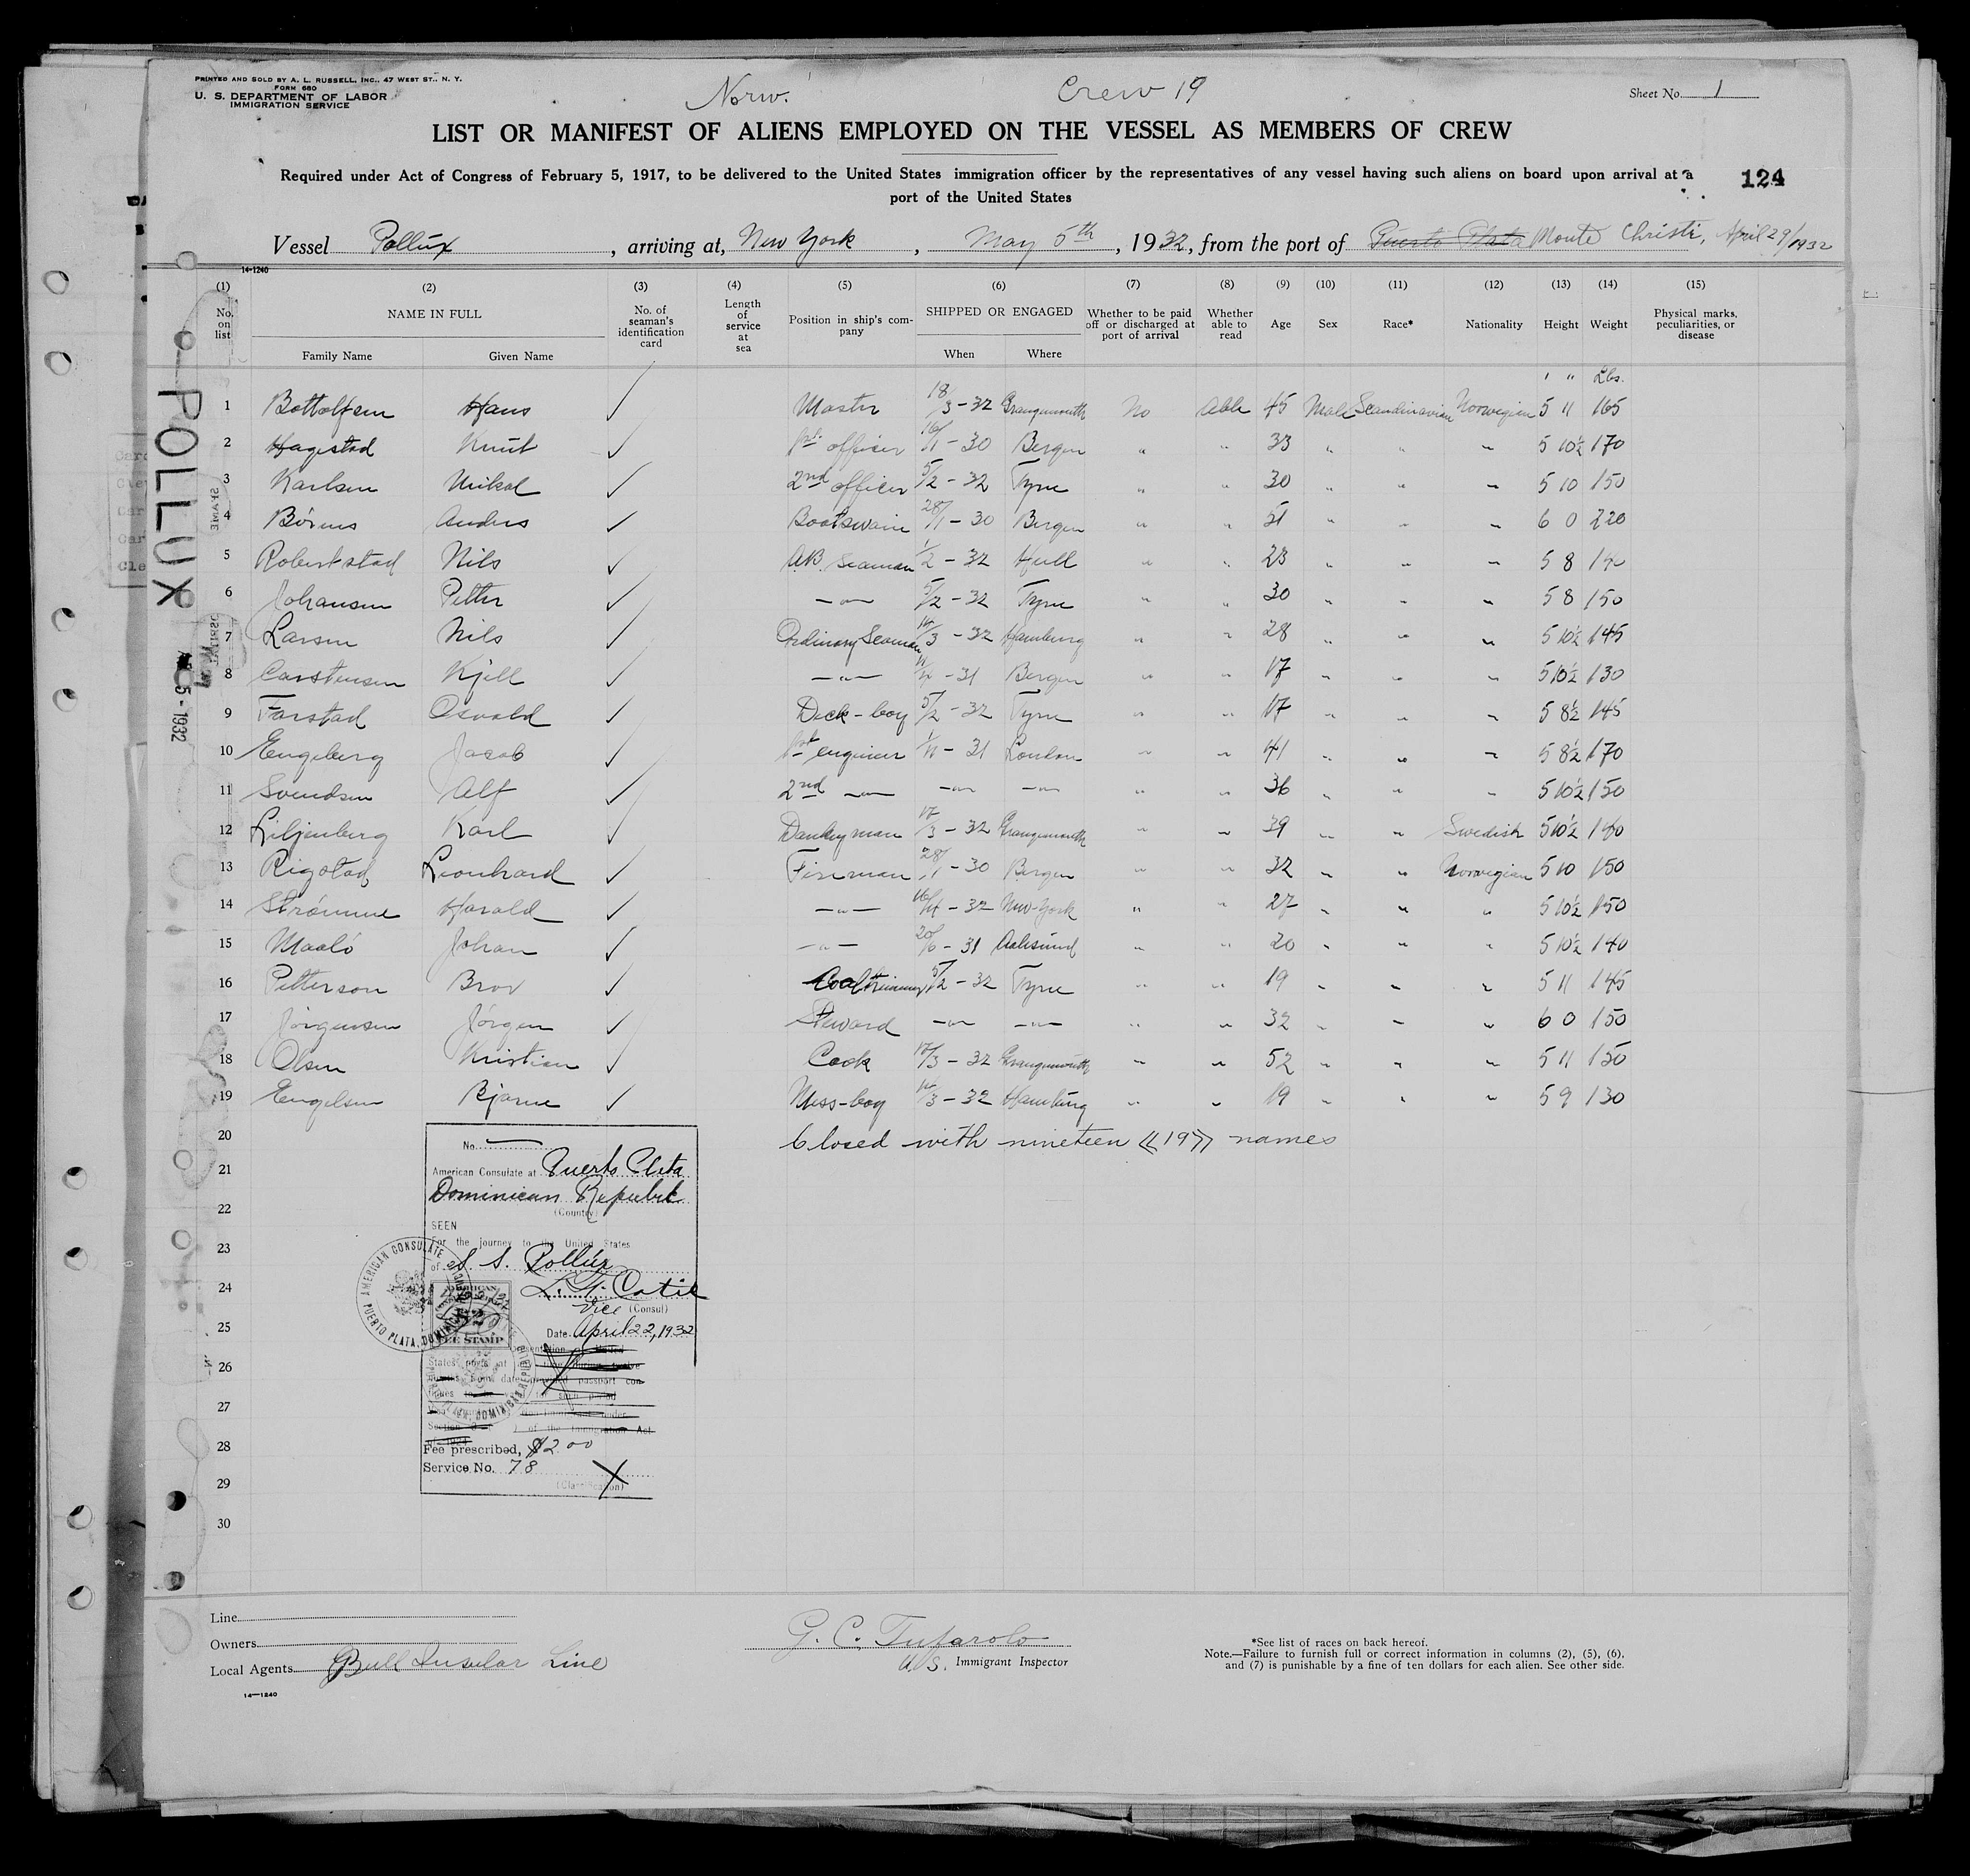 PRINTED AND SOLD BY A. L. RUSSELL, INC., 47 WEST ST., N. Y.
FORM 680
U. S. DEPARTMENT OF LABOR
IMMIGRATION SERVICE
Norw.
Crew 19
Sheet No. 1
LIST OR MANIFEST OF ALIENS EMPLOYED ON THE VESSEL AS MEMBERS OF CREW
Required under Act of Congress of February 5, 1917, to be delivered to the United States immigration officer by the representatives of any vessel having such aliens on board upon arrival at a
port of the United States
124
Vessel Pollux, arriving at, New York, May 5th, 1932, from the port of Puerto Plata Monte Christi, April 29/1932
14-1240
(1) (2) (3) (4) (5) (6) (7) (8) (9) (10) (11) (12) (13) (14) (15)
No. on list NAME IN FULL Family Name Given Name No. of seaman's identification card Length of service at sea Position in ship's company SHIPPED OR ENGAGED When Where Whether to be paid off or discharged at port of arrival Whether able to read Age Sex Race* Nationality Height Weight Physical marks, peculiarities, or disease
' " Lbs.
1 Bottolfsen Hans ✓ Master 18/3-32 Grangemouth No Able 45 Male Scandinavian Norwegian 5 11 165
2 Hagestad Knut ✓ 1st officer 16/1-30 Bergen " " 33 " " " 5 10½ 170
3 Karlsen Mikal ✓ 2nd officer 5/2-32 Tyne " " 30 " " " 5 10 150
4 Anders ✓ Boatswain 28/1-30 Bergen " " 51 " " " 6 0 220
5 Robertstad Nils ✓ A.B. Seaman 1/2-32 Hull " " 23 " " " 5 8 140
6 Johansen Petter ✓ —"— 5/2-32 Tyne " " 30 " " " 5 8 150
7 Larsen Nils ✓ Ordinary Seaman /3-32 Hamburg " " 28 " " " 5 10½ 145
8 Carstensen Kjell ✓ —"— -31 Bergen " " 17 " " " 5 10½ 130
9 Farstad Osvald ✓ Deck-boy 5/2-32 Tyne " " 17 " " " 5 8½ 145
10 Engeberg Jacob ✓ 1st engineer 1/11-31 London " " 41 " " " 5 8½ 170
11 Svendsen Alf ✓ 2nd —"— —"— —"— " " 36 " " " 5 10½ 150
12 Liljenberg Karl ✓ Dankeyman 17/3-32 Grangemouth " " 39 " " Swedish 5 10½ 140
13 Rigstad Leonhard ✓ Fireman 28/1-30 Bergen " " 32 " " Norwegian 5 10 150
14 Strømme Harald ✓ —"— -32 New-York " " 27 " " " 5 10½ 150
15 Maaló Johan ✓ —"— 20/6-31 Aalesund " " 20 " " " 5 10½ 140
16 Petterson Bror ✓ Coaltrimmer 5/2-32 Tyne " " 19 " " " 5 11 145
17 Jörgensen Jörgen ✓ Steward —"— —"— " " 32 " " " 6 0 150
18 Olsen Kristian ✓ Cook 17/3-32 Grangemouth " " 52 " " " 5 11 150
19 Engelsen Bjarne ✓ Mess-boy /3-32 Hamburg " " 19 " " " 5 9 130
20 Closed with nineteen «19» names
21
22
23
24
25
26
27
28
29
30
No.
American Consulate at Puerto Plata
Dominican Republic
(Country)
SEEN
For the journey to the United States
of S. S. Pollux
Vice (Consul)
Date April 22, 1932
AMERICAN CONSULATE
PUERTO PLATA, DOMINICAN REPUBLIC
FEE STAMP
Fee prescribed, $2.00
Service No. 78
(Classification)
POLLUX
5 - 1932
Line
Owners
Local Agents Bull Insular Line
14—1240
G. C. Tufarolo
U.S. Immigrant Inspector
*See list of races on back hereof.
Note.—Failure to furnish full or correct information in columns (2), (5), (6),
and (7) is punishable by a fine of ten dollars for each alien. See other side.